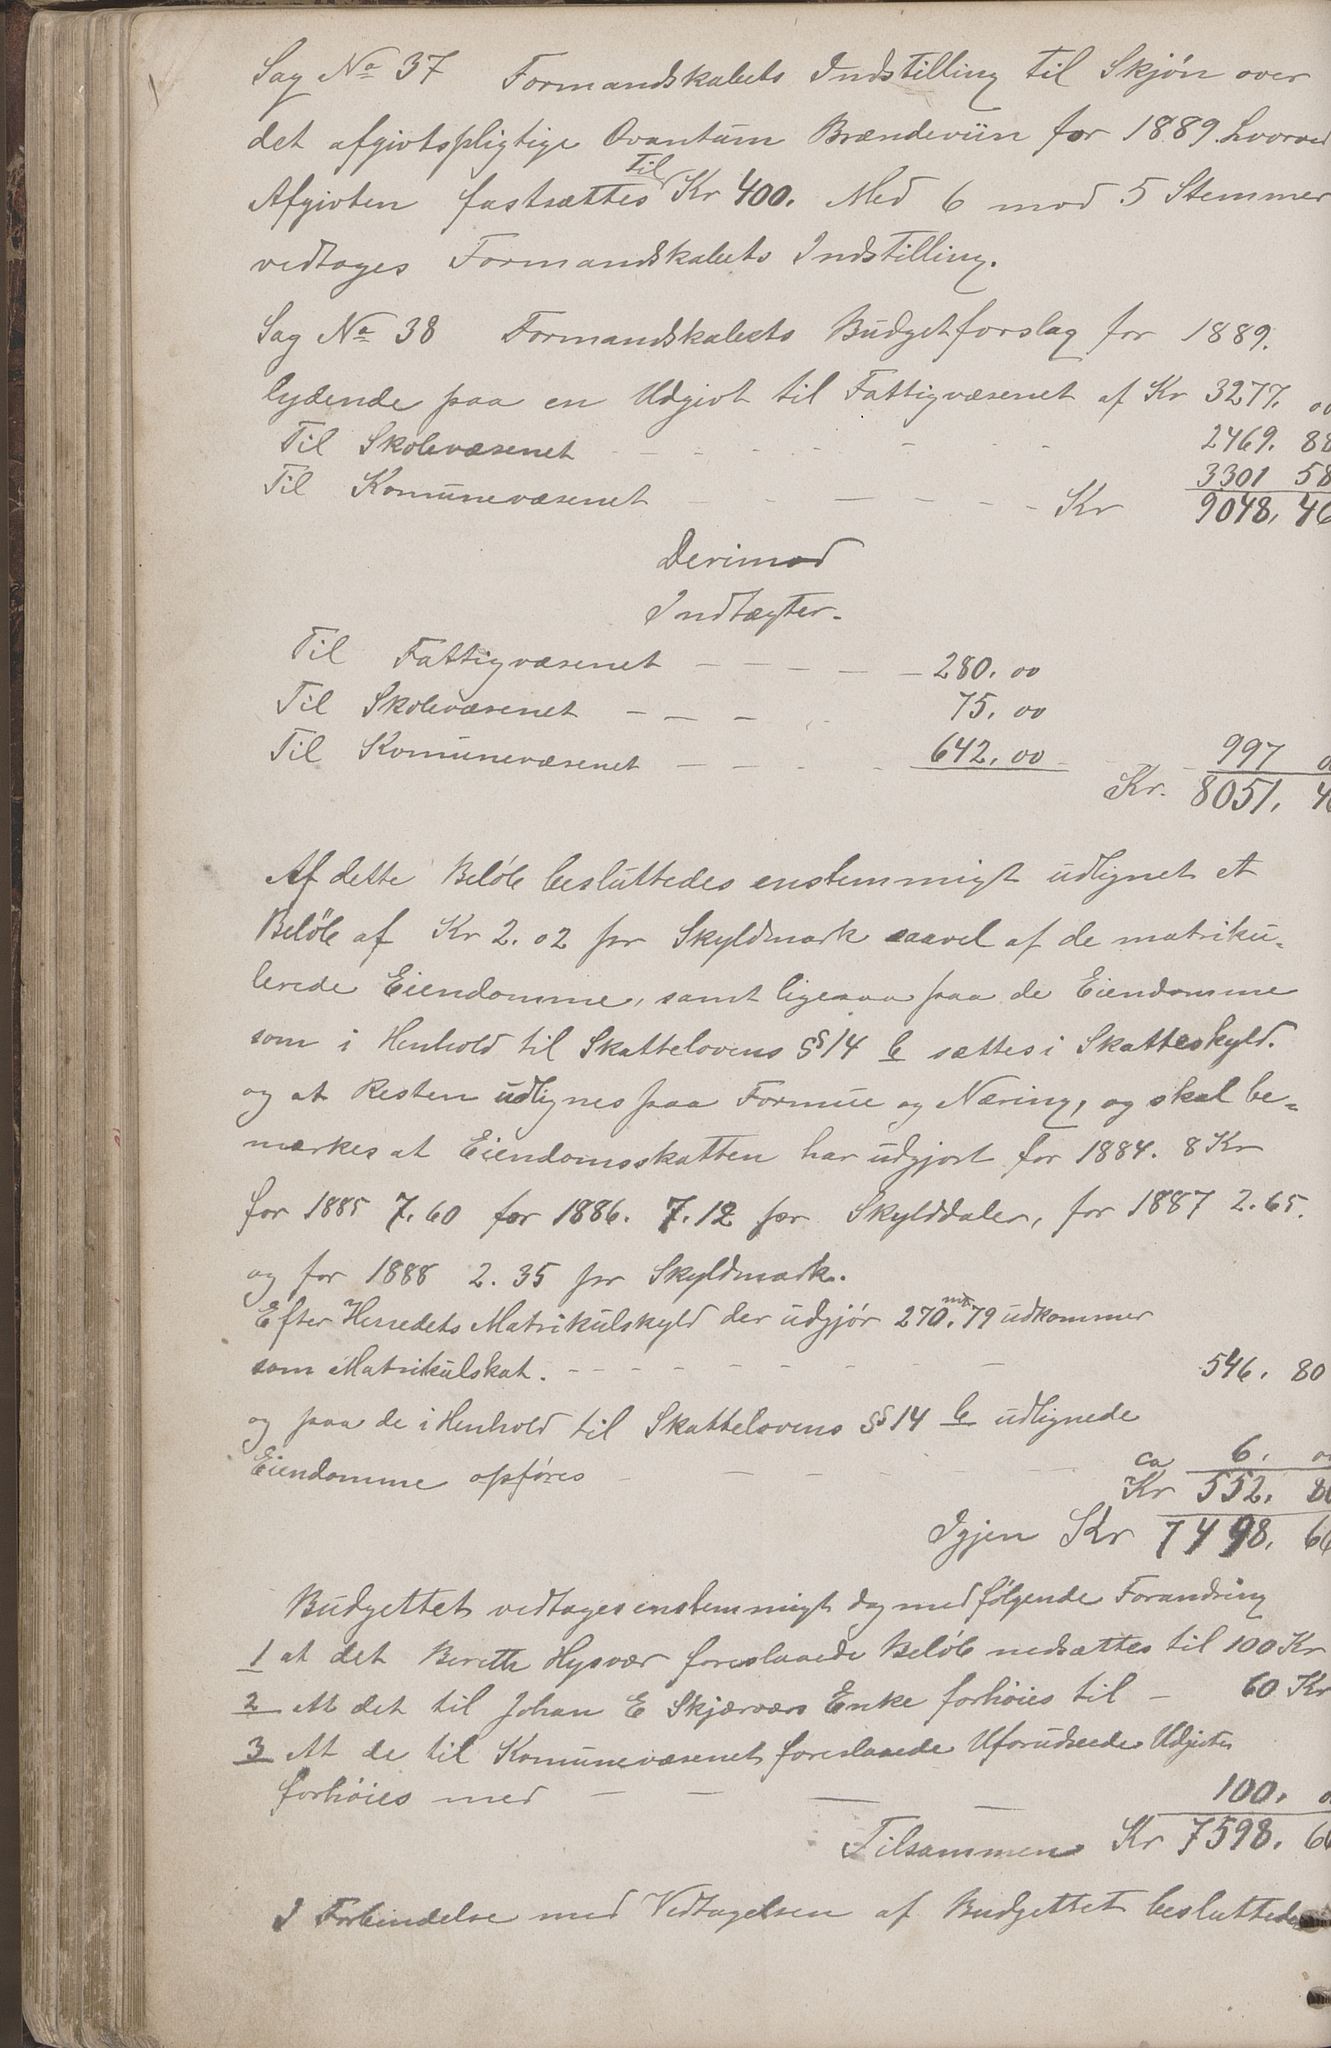 Sag No 37 Formandskabets Indstilling til Skjøn over
det afgivtspligtige Qvantum Brændeviin for 1889 hvorved
Afgivten fastsættes til Kr 400. Med 6 mod 5 Stemmer
vedtages Formandskabets Indstilling.
Sag No 38 Formandskabets Budgetforslag for 1889.
lydende paa en Udgivt til Fattigvæsenet af Kr 3277. 00
Til Skolevæsenet - - - - - - 2469. 88
Til Komunevæsenet - - - - - - 3301 58
Kr 9048. 46
Derimod
Indtægter.
Til Fattigvæsenet - - - - - 280. 00
Til Skolevæsenet - - - - 75. 00
Til Komunevæsenet - - - - 642. 00 - - 997 00
Kr. 8051. 46
Af dette Beløb besluttedes enstemmigt udlignet et
Beløb af Kr 2.02 pr Skyldmark saavel af de matriku-
lerede Eiendomme, samt ligesaa paa de Eiendomme
som i Henhold til Skattelovens §§ 14 b sættes i Skatteskyld.
og at Resten udlignes paa Formue og Næring, og skal be-
mærkes at Eiendomsskatten har udgjort for 1884. 8 Kr
for 1885 7.60 for 1886. 7.12 pr Skylddaler, for 1887 2.65.
og for 1888 2.35 pr Skyldmark.
Efter Herredets Matrikulskyld der udgjør 270 mk. 79 udkommer
som Matrikulskat. - - - - - - - - 546. 80
og paa de i Henhold til Skattelovens §§ 14 b udlignede
Eiendomme opføres - - - - - ca 6. 00
Kr 552. 80
Igjen Kr 7498. 66
Budgettet vedtages enstemmigt dog med følgende Forandring
1 at det Bereth Hysvær foreslaaede Beløb nedsættes til 100 Kr
2 At det til Johan E Skjærværs Enke forhøies til - 60 Kr
3 At de til Komunevæsenet foreslaaede Uforudseede Udgivter
forhøies med - - - - 100. 00
Tilsammen Kr 7598. 66
I Forbindelse med Vedtagelsen af Budgettet besluttedes